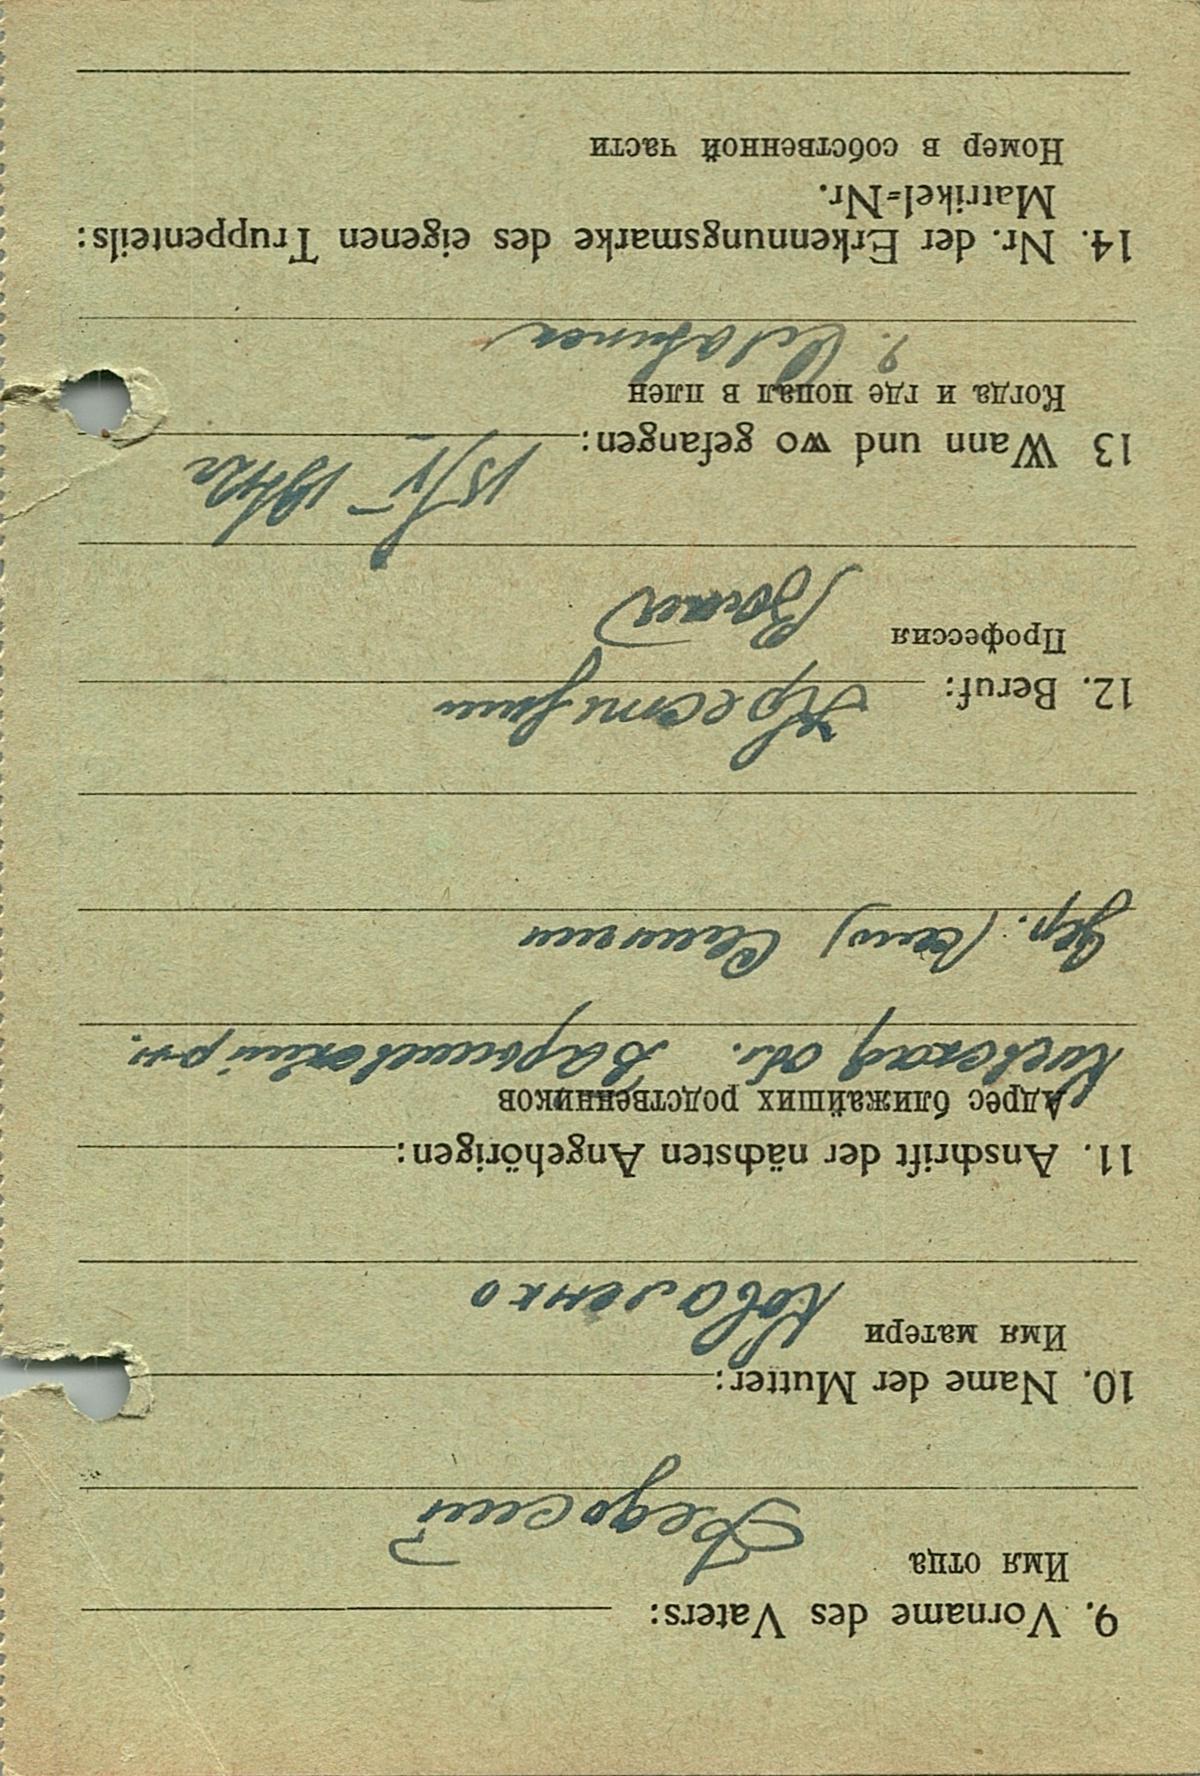 9. Vorname des Vaters:
Имя отца
Федосий
10. Name der Mutter:
Имя матери
Коваленко
11. Anschrift der nächsten Angehörigen:
Адрес ближайших родственников
Киевская обл. Барышевский р-н.
дер. (село)
12. Beruf:
Крестьянин
Профессия
13 Wann und wo gefangen:
15/V 1942г
Когда и где попал в плен
14. Nr. der Erkennungsmarke des eigenen Truppenteils:
Matrikel=Nr.
Номер в собственной части